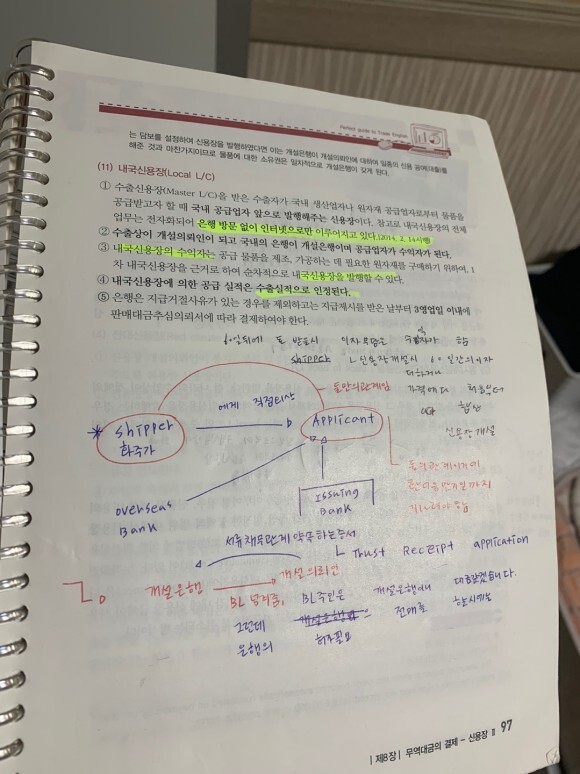 Perfect guide to Trade English
는 담보를 설정하여 신용장을 발행하였다면 이는 개설은행이 개설의뢰인에 대하여 일종의 신용 공여(대출)를
해준 것과 마찬가지이므로 물품에 대한 소유권은 일차적으로 개설은행이 갖게 된다.
(11) 내국신용장(Local L/C)
① 수출신용장(Master L/C)을 받은 수출자가 국내 생산업자나 원자재 공급업자로부터 물품을
공급받고자 할 때 국내 공급업자 앞으로 발행해주는 신용장이다. 참고로 내국신용장의 전체
업무는 전자화되어 은행 방문 없이 인터넷으로만 이루어지고 있다.(2014. 2. 14시행)
② 수출상이 개설의뢰인이 되고 국내의 은행이 개설은행이며 공급업자가 수익자가 된다.
③ 내국신용장의 수익자는 공급 물품을 제조, 가공하는 데 필요한 원자재를 구매하기 위하여, 1
차 내국신용장을 근거로 하여 순차적으로 내국신용장을 발행할 수 있다.
④ 내국신용장에 의한 공급 실적은 수출실적으로 인정된다.
⑤ 은행은 지급거절사유가 있는 경우를 제외하고는 지급제시를 받은 날부터 3영업일 이내에
판매대금추심의뢰서에 따라 결제하여야 한다.
60일뒤에 돈 받을시 이자부담은 수익자가 함
shipper 신용장개설시 60일간의이자
더하거나
가격에다 처음부터
합산
신용장개설
둘만의관계임
에게 직접보상
* shipper
화주가
Applicant
overseas
BANK
ISSUING
BANK
서류채무관계 약속하는증서
Trust Receipt application
개설은행 → 개설의뢰인
BL 넘겨줌, BL주인은 개설은행이니 대출갚겠습니다.
그런데 전매를 할시에는
은행의 허가필요
| 제8장 | 무역대금의 결제 - 신용장 Ⅱ 97